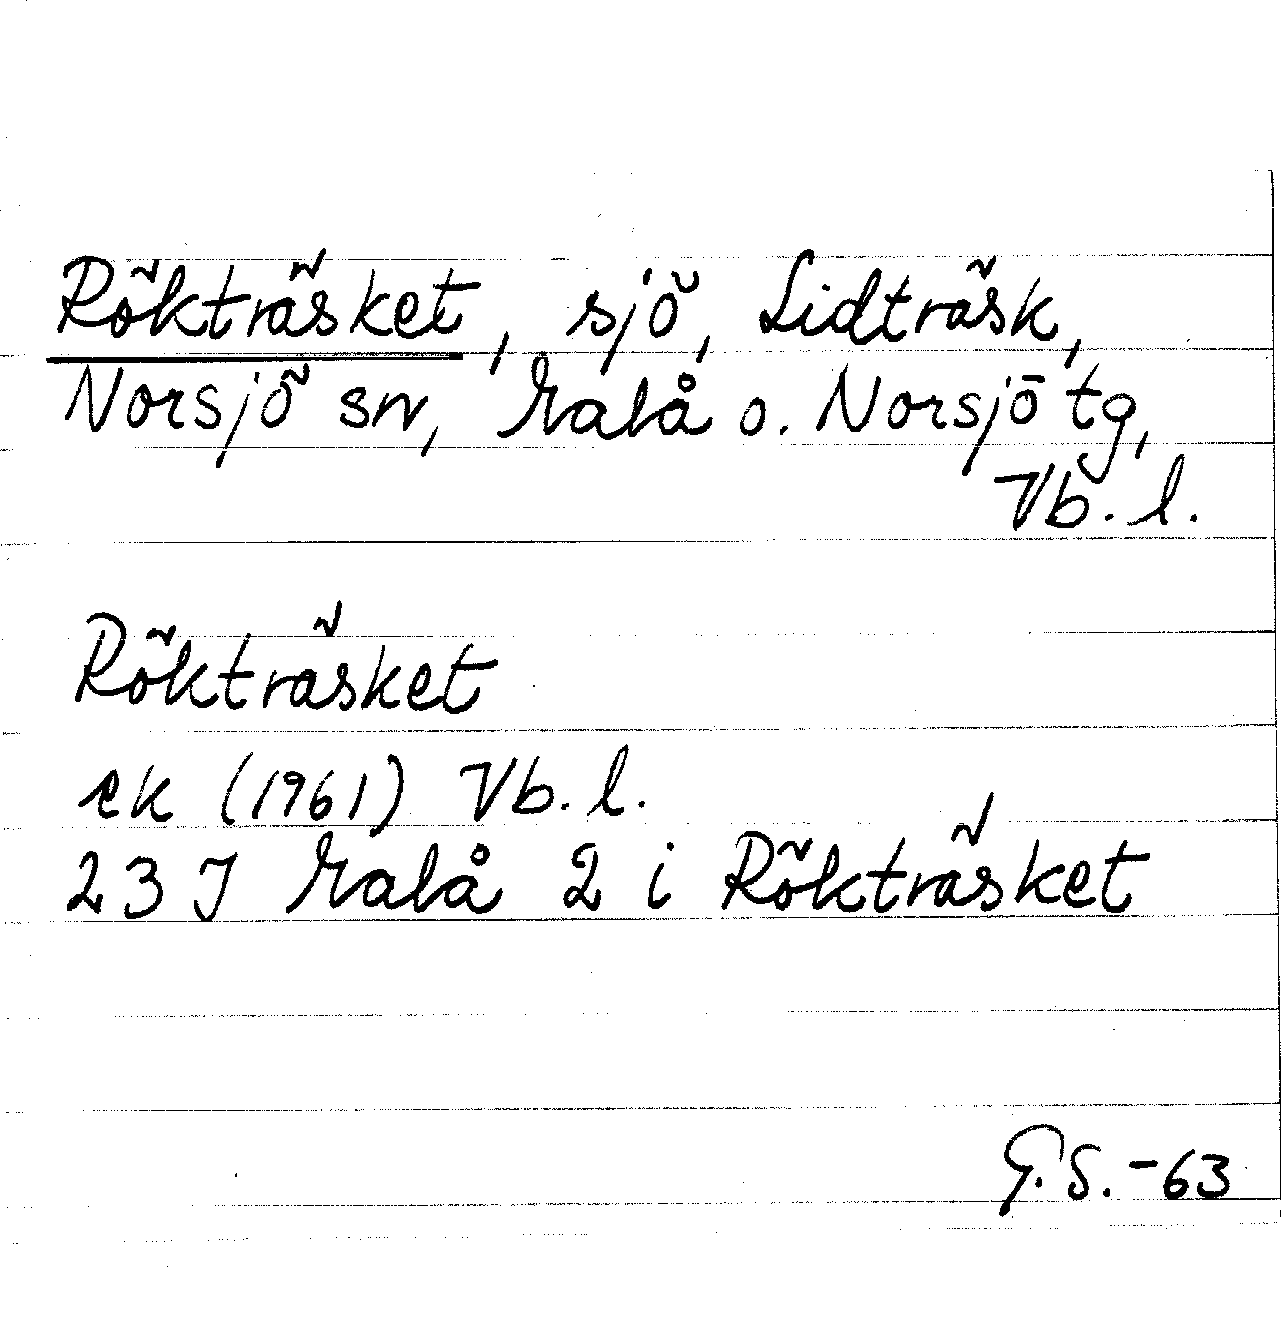 Rökträsket, sjö, Lidträsk,
Norsjö sn, Malå o. Norsjö tg,
Vb. l.
Rökträsket
ek (1961) Vb. l.
23 J Malå 2 i Rökträsket
G. S. -63